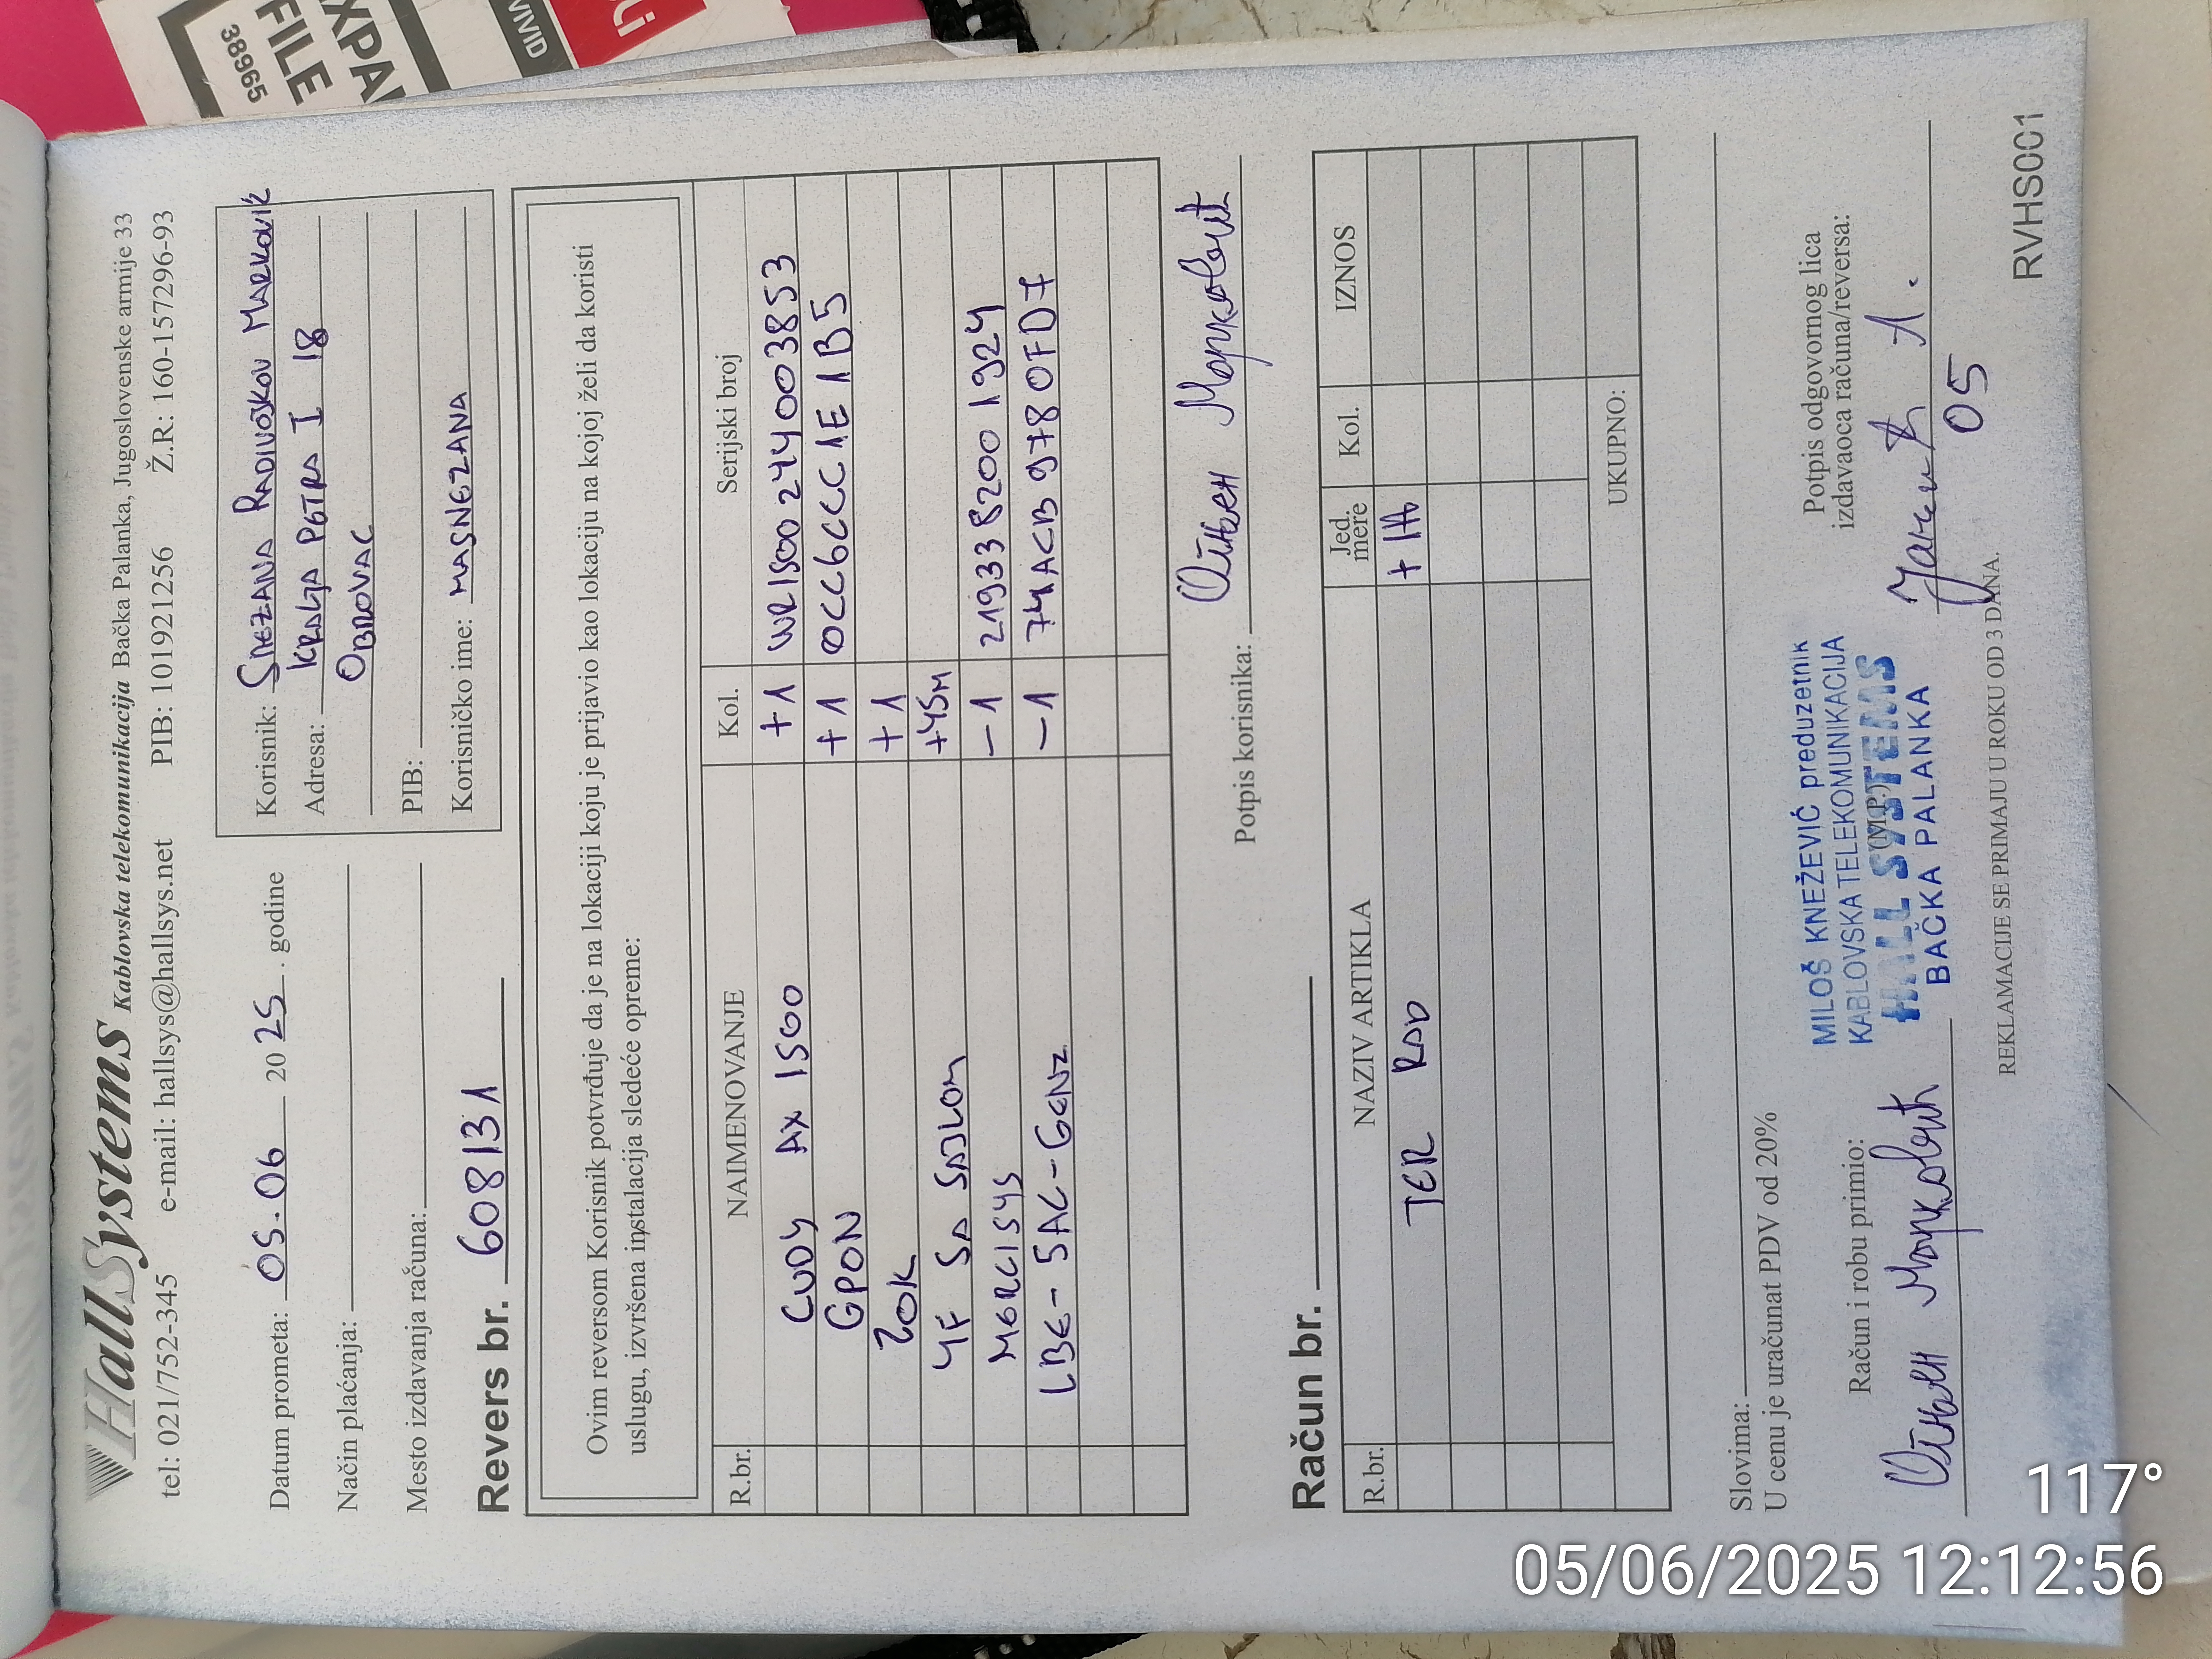 HallSystems Kablovska telekomunikacija Bačka Palanka, Jugoslovenske armije 33
tel: 021/752-345 e-mail: hallsys@hallsys.net PIB: 101921256 Ž.R.: 160-157296-93
Datum prometa: 05.06 2025. godine
Način plaćanja:
Mesto izdavanja računa:
Korisnik: SNEZANA RADIVOJKOV MARKOVIĆ
Adresa: KRALJA PETRA I 18
OBROVAC
PIB:
Korisničko ime: MASNEZANA
Revers br. 608131
Ovim reversom Korisnik potvrđuje da je na lokaciji koju je prijavio kao lokaciju na kojoj želi da koristi
uslugu, izvršena instalacija sledeće opreme:
R.br. NAIMENOVANJE Kol. Serijski broj
CUDY AX 1500 +1 WR1500244003853
GPON +1 0CC6CCC1E1B5
ZOK +1
4F SA SAJLOM +45M
MERCISYS -1 2193382001924
LBE-5AC-GEN2 -1 74ACB9780FD7
Potpis korisnika: Огњен Марковић
Račun br.
R.br. NAZIV ARTIKLA Jed. mere Kol. IZNOS
TER RAD + 1h
UKUPNO:
Slovima:
U cenu je uračunat PDV od 20%
Račun i robu primio:
Огњен Марковић
MILOŠ KNEŽEVIĆ preduzetnik
KABLOVSKA TELEKOMUNIKACIJA
HALL SYSTEMS
BAČKA PALANKA
(M.P.)
Potpis odgovornog lica
izdavaoca računa/reversa:
05
REKLAMACIJE SE PRIMAJU U ROKU OD 3 DANA.
RVHS001
XPA
FILE
38965
VIVID
05/06/2025 12:12:56
117°